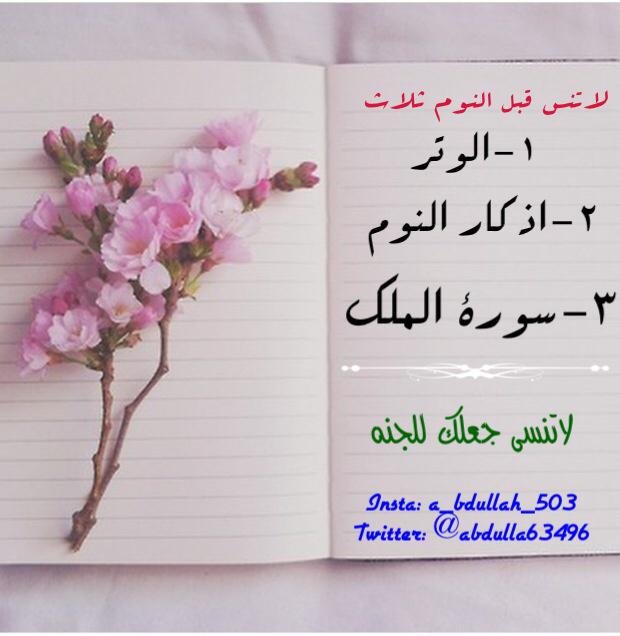 لاتنس قبل النوم ثلاث
١-الوتر
٢-اذكار النوم
٣-سورة الملك
لاتنسى جعلك للجنه
Insta: a_bdullah_503
Twitter: @abdulla63496